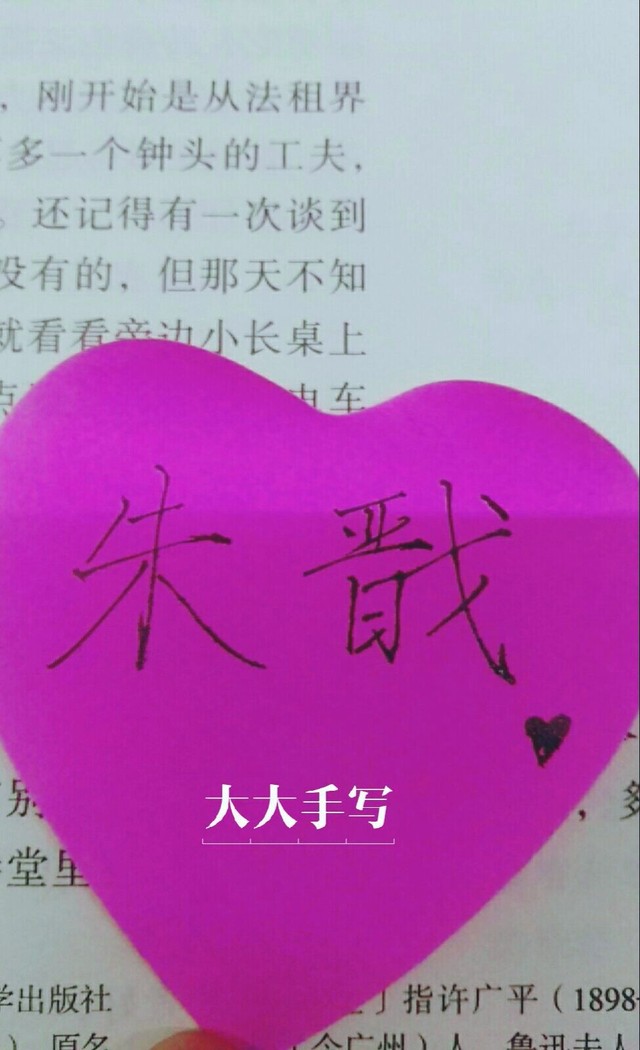 ，刚开始是从法租界
多一个钟头的工夫，
。还记得有一次谈到
没有的，但那天不知
就看看旁边小长桌上
电车
朱戬
大大手写
别
，多
堂里
学出版社
指许广平（1898-
）原名
今广州）人，鲁迅夫人